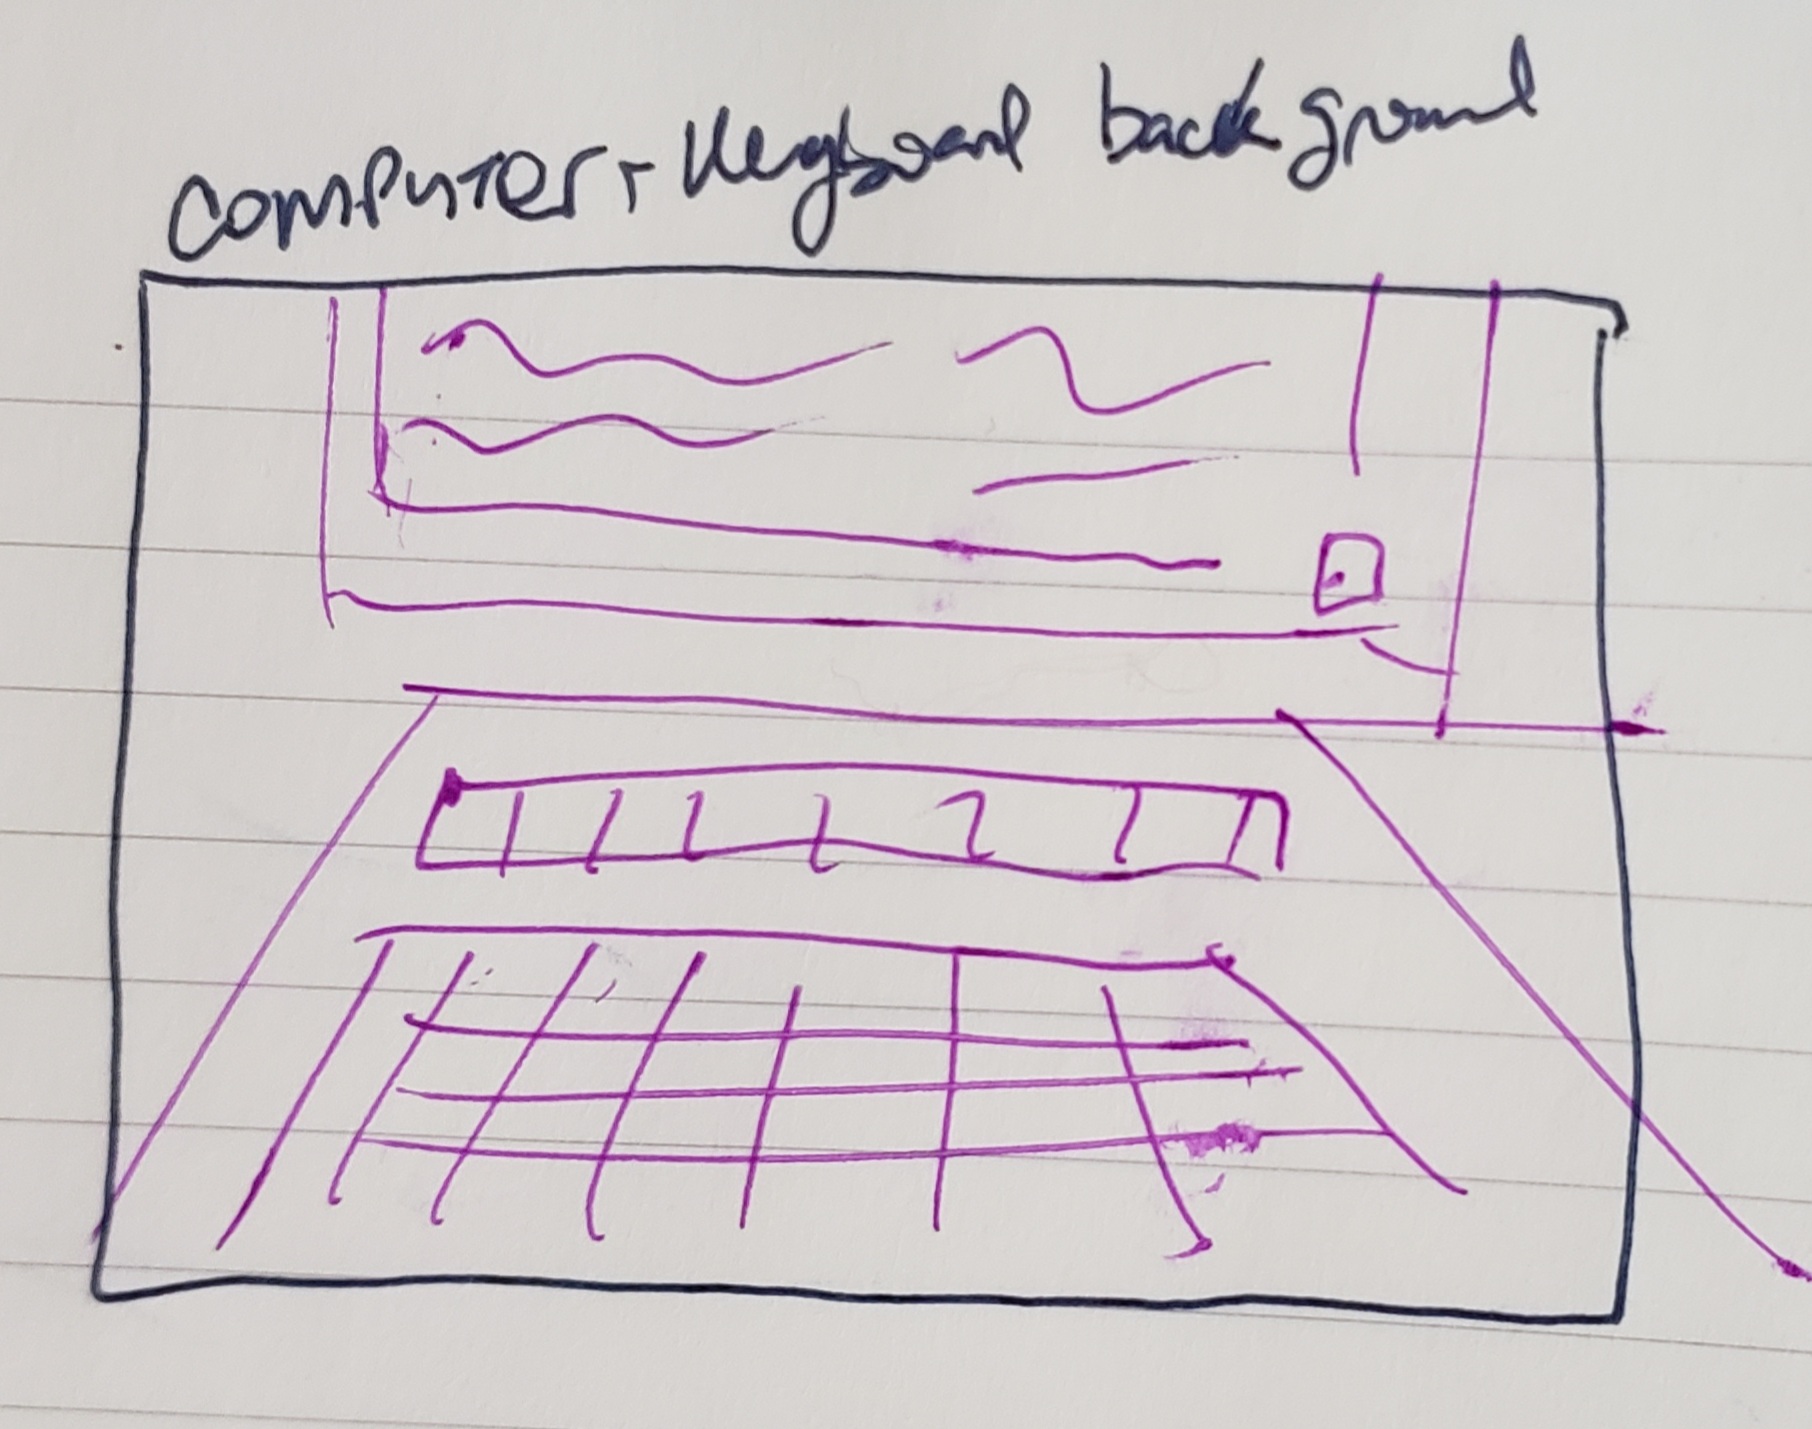 COMPUTER + Keyboard background